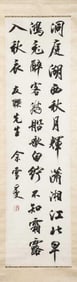 洞庭湖西秋月輝瀟湘江北早
鴻飛醉客滿船歌白紵不知霜露
入秋衣 先生 余雪曼